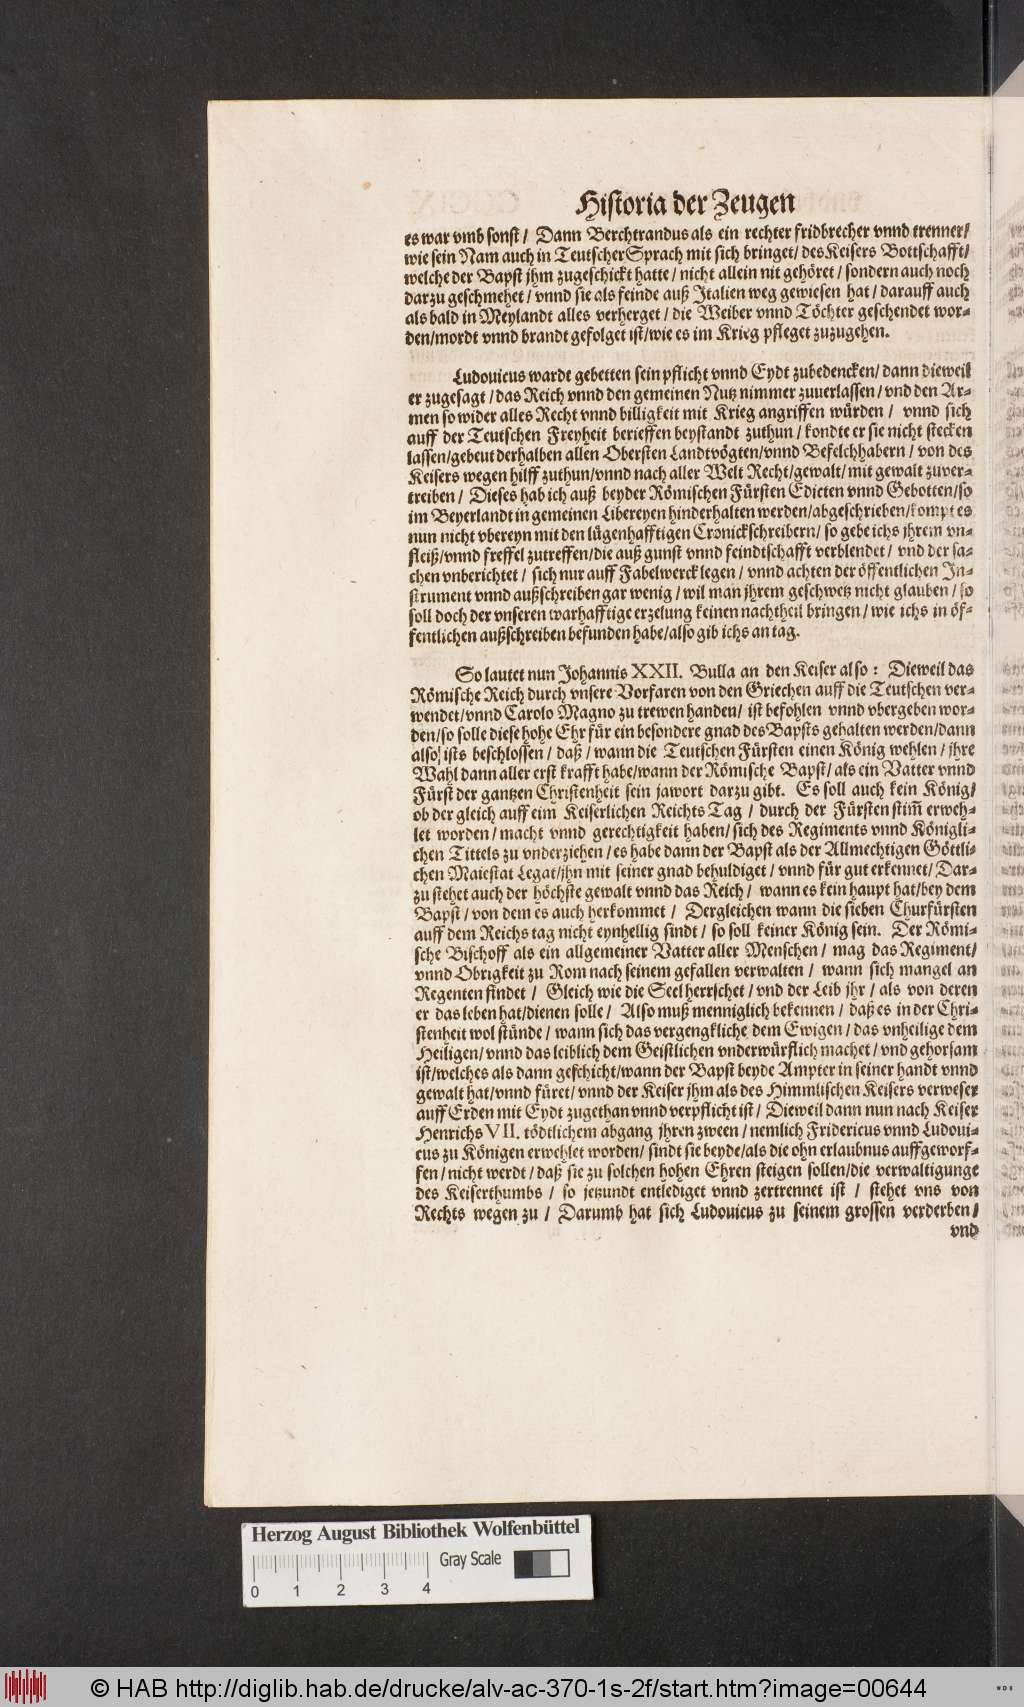 Historia der Zeugen
es war vmb sonst / Dann Berchtrandus als ein rechter fridbrecher vnnd trenner/
wie sein Nam auch in Teutscher Sprach mit sich bringet/ des Keisers Bottschafft/
welche der Bapst jhm zugeschickt hatte / nicht allein nit gehöret / sondern auch noch
darzu geschmehet / vnnd sie als feinde auß Italien weg gewiesen hat / darauff auch
als bald in Meylandt alles verherget / die Weiber vnnd Töchter geschendet wor-
den/mordt vnnd brandt gefolget ist/wie es im Krieg pfleget zuzugehen.
Ludouicus wardt gebetten sein pflicht vnnd Eydt zubedencken/ dann dieweil
er zugesagt / das Reich vnnd den gemeinen Nutz nimmer zuuerlassen / vnd den Ar-
men so wider alles Recht vnnd billigkeit mit Krieg angriffen würden / vnnd sich
auff der Teutschen Freyheit berieffen beystandt zuthun / kondte er sie nicht stecken
lassen/gebeut derhalben allen Obersten Landtvögten/vnnd Befelchhabern / von des
Keisers wegen hilff zuthun/vnnd nach aller Welt Recht/gewalt/ mit gewalt zuver-
treiben / Dieses hab ich auß beyder Römischen Fürsten Edicten vnnd Gebotten/so
im Beyerlandt in gemeinen Libereyen hinderhalten werden/abgeschrieben/kompt es
nun nicht vbereyn mit den lügenhafftigen Cronickschreibern/ so gebe ichs jhrem vn-
fleiß/vnnd freffel zutreffen/die auß gunst vnnd feindtschafft verblendet / vnd der sa-
chen vnberichtet / sich nur auff Fabelwerck legen / vnnd achten der öffentlichen In-
strument vnnd außschreiben gar wenig / wil man jhrem geschwetz nicht glauben / so
soll doch der vnseren warhafftige erzelung keinen nachtheil bringen / wie ichs in öf-
fentlichen außschreiben befunden habe/also gib ichs an tag.
So lautet nun Johannis XXII. Bulla an den Keiser also : Dieweil das
Römische Reich durch vnsere Vorfaren von den Griechen auff die Teutschen ver-
wendet/vnnd Carolo Magno zu trewen handen/ ist befohlen vnnd vbergeben wor-
den/so solle diese hohe Ehr für ein besondere gnad des Bapsts gehalten werden/dann
also ists beschlossen / daß / wann die Teutschen Fürsten einen König wehlen / jhre
Wahl dann aller erst krafft habe/wann der Römische Bapst/ als ein Vatter vnnd
Fürst der gantzen Christenheit sein jawort darzu gibt. Es soll auch kein König/
ob der gleich auff eim Keiserlichen Reichts Tag / durch der Fürsten stim̃ erweh-
let worden / macht vnnd gerechtigkeit haben/ sich des Regiments vnnd Königli-
chen Tittels zu vnderziehen / es habe dann der Bapst als der Allmechtigen Göttli-
chen Maiestat Legat/jhn mit seiner gnad behuldiget / vnnd für gut erkennet/ Dar-
zu stehet auch der höchste gewalt vnnd das Reich / wann es kein haupt hat/bey dem
Bapst / von dem es auch herkommet / Dergleichen wann die sieben Churfürsten
auff dem Reichs tag nicht eynhellig sindt / so soll keiner König sein. Der Römi-
sche Bischoff als ein allgemeiner Vatter aller Menschen / mag das Regiment/
vnnd Obrigkeit zu Rom nach seinem gefallen verwalten / wann sich mangel an
Regenten findet / Gleich wie die Seel herrschet / vnd der Leib jhr / als von deren
er das leben hat/dienen solle / Also muß menniglich bekennen / daß es in der Chri-
stenheit wol stünde / wann sich das vergengkliche dem Ewigen / das vnheilige dem
Heiligen/vnnd das leiblich dem Geistlichen vnderwürflich machet / vnd gehorsam
ist/welches als dann geschicht/wann der Bapst beyde Ampter in seiner handt vnnd
gewalt hat/vnnd füret/ vnnd der Keiser jhm als des Himmlischen Keisers verweser
auff Erden mit Eydt zugethan vnnd verpflicht ist / Dieweil dann nun nach Keiser
Henrichs VII. tödtlichem abgang jhren zween / nemlich Fridericus vnnd Ludoui-
cus zu Königen erwehlet worden/ sindt sie beyde/als die ohn erlaubnus auffgeworf-
fen / nicht werdt / daß sie zu solchen hohen Ehren steigen sollen/die verwaltigunge
des Keiserthumbs / so jetzundt entlediget vnnd zertrennet ist / stehet vns von
Rechts wegen zu / Darumb hat sich Ludouicus zu seinem grossen verderben/
vnd
Herzog August Bibliothek Wolfenbüttel
Gray Scale
0 1 2 3 4
© HAB http://diglib.hab.de/drucke/alv-ac-370-1s-2f/start.htm?image=00644